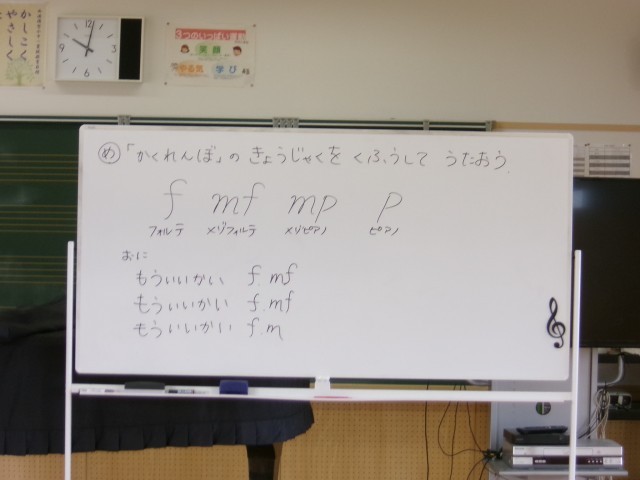 かしこく
やさしく
12
3
6
9
3つのいっぱい運動
笑顔
やる気
学び
め「かくれんぼ」の きょうじゃくを くふうして うたおう。
f mf mp p
フォルテ メゾフォルテ メゾピアノ ピアノ
おに
もういいかい f.mf
もういいかい f.mf
もういいかい f.m